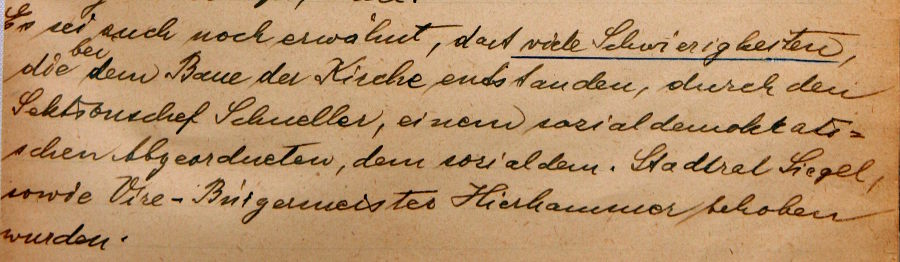 Es sei auch noch erwähnt, daß viele Schwierigkeiten,
die bei dem Baue der Kirche entstanden, durch den
Sektionschef Schneller, einem sozialdemokrati=
schen Abgeordneten, dem sozialdem. Stadtrat Siegel,
sowie Vize-Bürgermeister Hierhammer behoben
wurden.